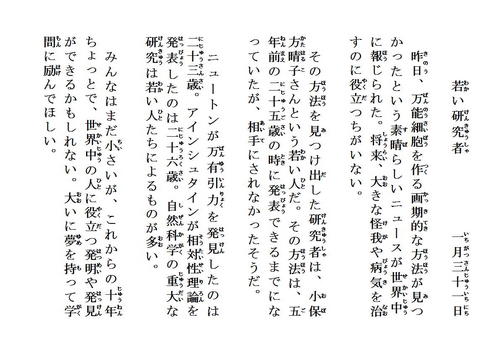 若い研究者
一月三十一日
昨日、万能細胞を作る画期的な方法が見つ
かったという素晴らしいニュースが世界中
に報じられた。将来、大きな怪我や病気を治
すのに役立つちがいない。
その方法を見つけ出した研究者は、小保
方晴子さんという若い人だ。その方法は、五
年前の二十五歳の時に発表できるまでにな
っていたが、相手にされなかったそうだ。
ニュートンが万有引力を発見したのは
二十三歳。アインシュタインが相対性理論を
発表したのは二十六歳。自然科学の重大な
研究は若い人たちによるものが多い。
みんなはまだ小さいが、これからの十年
ちょっとで、世界中の人に役立つ発明や発見
ができるかもしれない。大いに夢を持って学
問に励んでほしい。